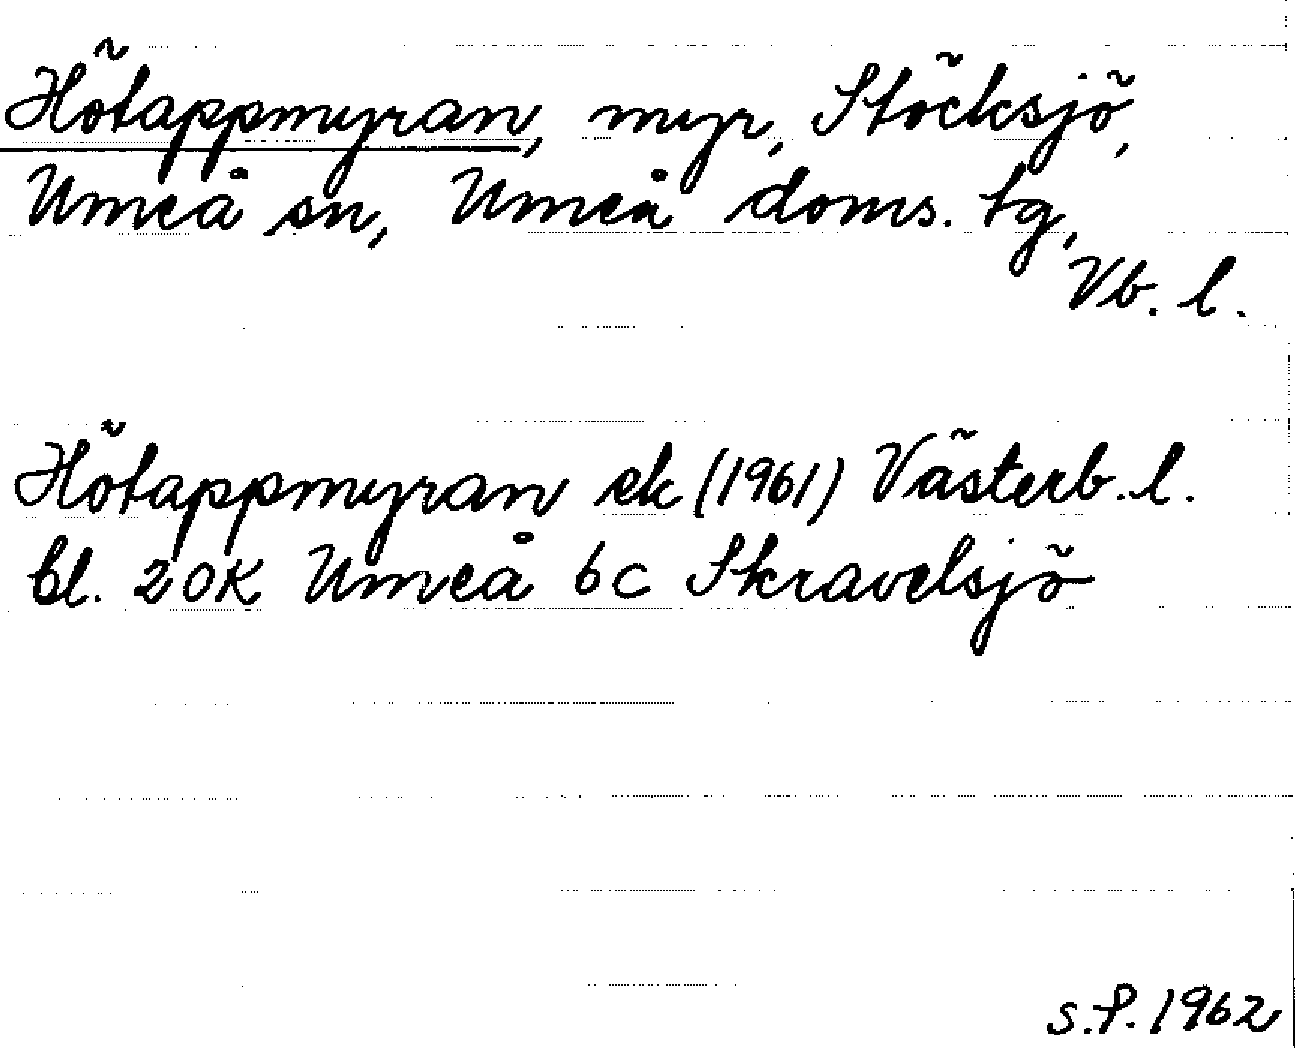 Hötappmyran, myr, Stöcksjö,
Umeå sn, Umeå doms. tg,
Vb. l.
Hötappmyran ek (1961) Västerb. l.
bl. 20K Umeå 6c Skravelsjö
S.P. 1962